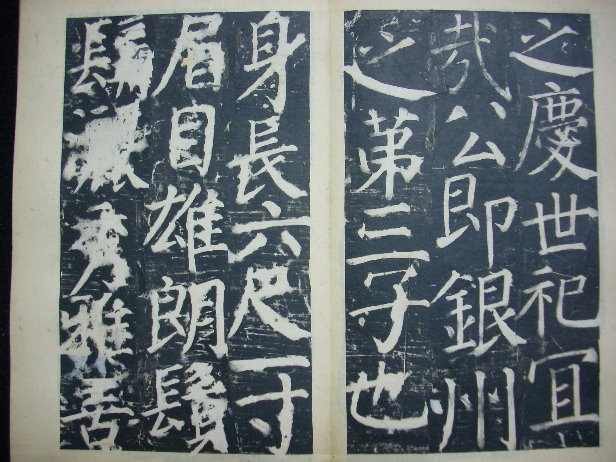 之慶世祀宜
哉公即銀州
之第三子也
身長六尺一寸
眉目雄朗鬢
秀雅善